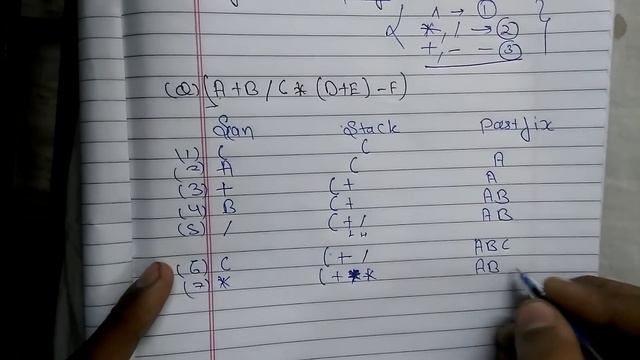 ^ → ①
*, / → ②
+, - - ③
(Q) (A+B / C * (D+E) - F)
Scan Stack Postfix
(1) ( (
(2) A ( A
(3) + (+ A
(4) B (+ AB
(5) / (+/ AB
(6) C (+/ ABC
(7) * (+** AB